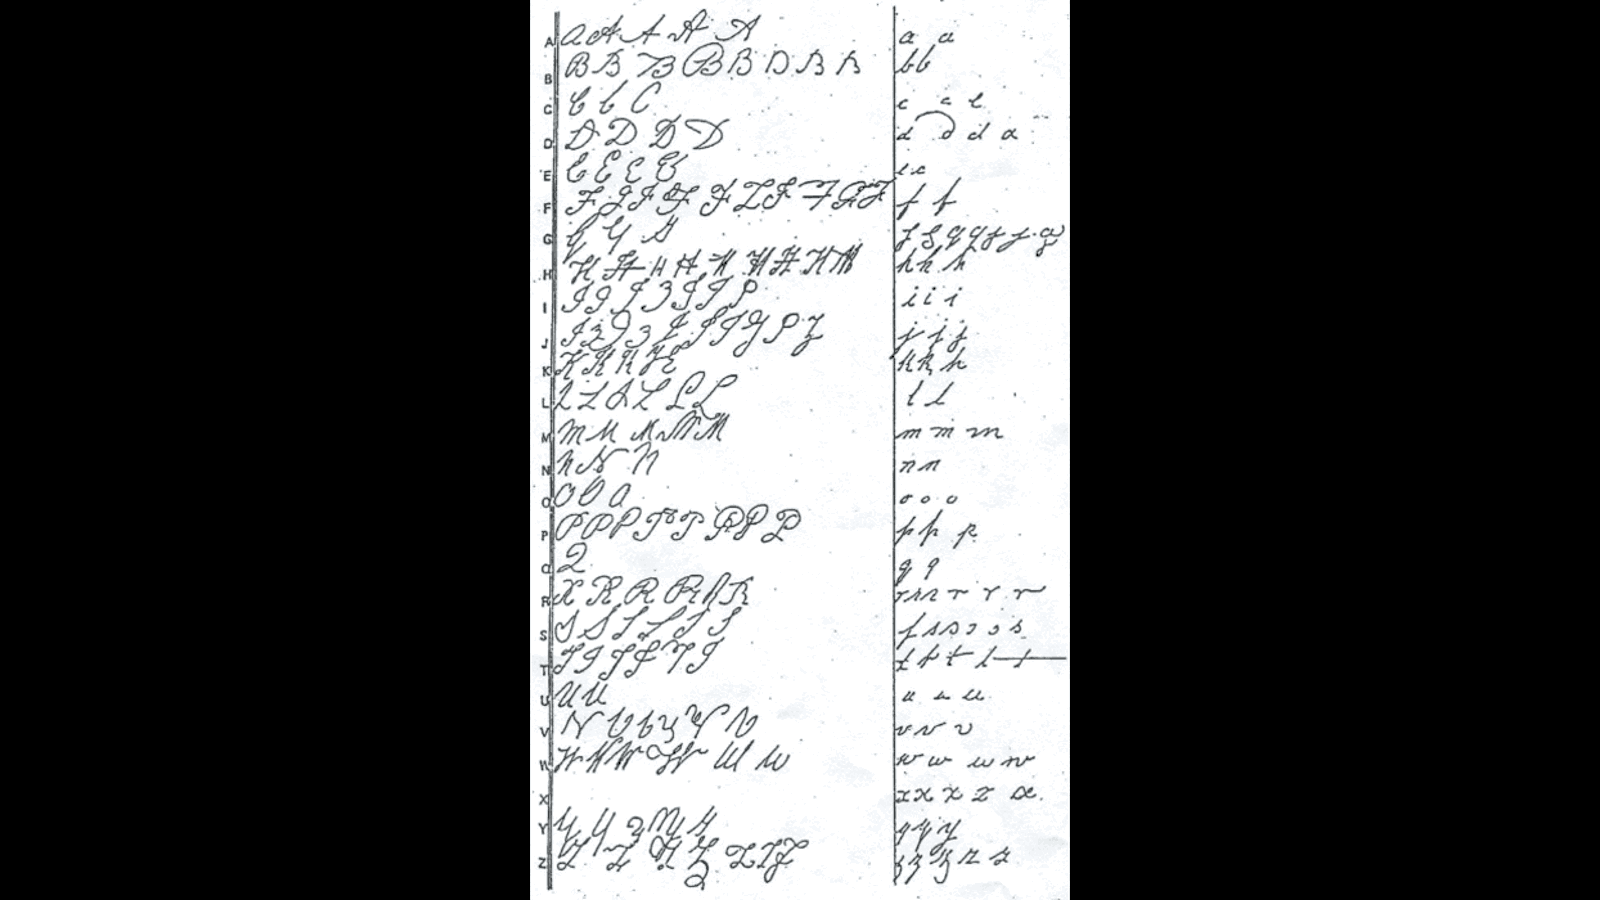 A a A A A A a a
B B B B B B D B B b b
C C C C c c c
D D D D D d d d a
E E E E E e e
F F F F F F F F F F F f f
G G G G g g g g g g g
H H H H H H H H H H h h h
I I I I I I I P i i i
J J J J J J J J J P J j j j
K K K K K K k k k
L L L L L L L l l
M M M M M M m m m
N N N N n n
O O O O o o o
P P P P P P P P P p p p
Q Q q q
R R R R R R R r r r r r r
S S S S S S S s s s s s s
T T T T T T T t t t t t
U U U u u u
V V V V V V V v v v
W W W W W W W w w w w
X x x x x x
Y Y Y Y Y Y y y y
Z Z Z Z Z Z Z Z z z z z z